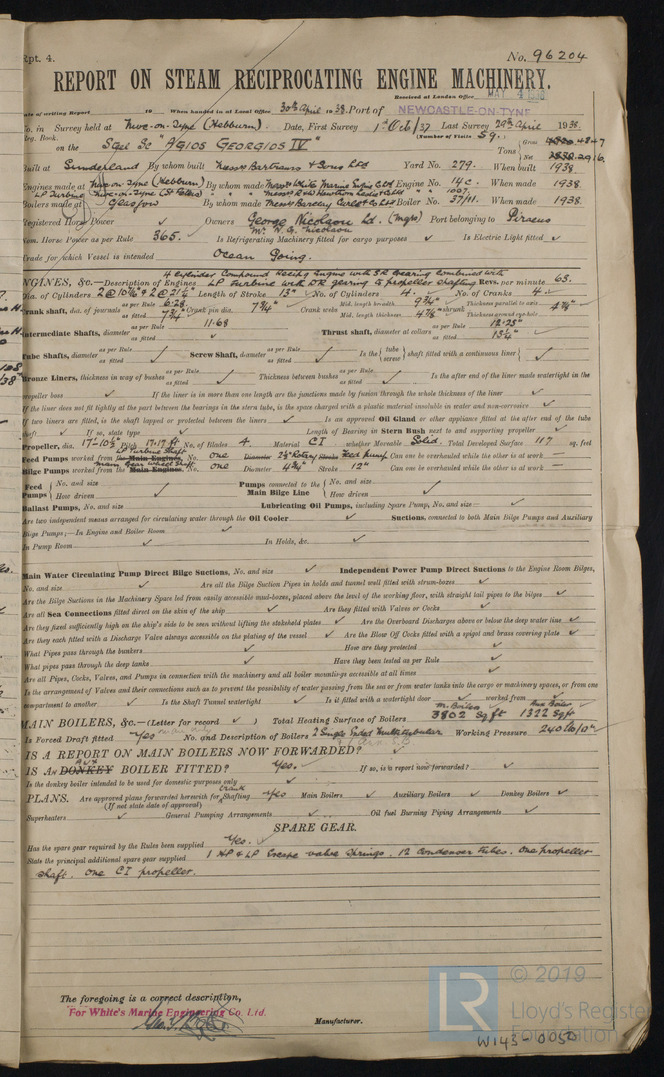 Rpt. 4.
No. 96204
REPORT ON STEAM RECIPROCATING ENGINE MACHINERY.
Received at London Office MAY 4 1938
Date of writing Report 19 When handed in at Local Office 30th April 1938. Port of NEWCASTLE-ON-TYNE
No. in Survey held at Nwc-on-Tyne (Hebburn) Date, First Survey 1st Oct/37 Last Survey 20th April 1938.
Reg. Book. (Number of Visits 59.)
on the Sgle Sc "AGIOS GEORGIOS IV" Tons Gross 4847
Net 2916
Built at Sunderland By whom built Messrs Bartrams & Sons Ltd Yard No. 279. When built 1938.
Engines made at Nwc-on-Tyne (Hebburn) By whom made Messrs White's Marine Engine Co Ltd Engine No. 14c. When made 1938
LP Turbine Nwc-on-Tyne (St Peters)
Boilers made at Glasgow By whom made Messrs Barclay Curle & Co Ltd Boiler No. 37/11. When made 1938
Registered Horse Power Owners George Nicolaou Ld. (Mgrs) Port belonging to Piraeus
Mr. N. G. Nicolaou
Nom. Horse Power as per Rule 365. Is Refrigerating Machinery fitted for cargo purposes ✓ Is Electric Light fitted ✓
Trade for which Vessel is intended Ocean Going.
ENGINES, &c.—Description of Engines 4 cylinder Compound Recipg Engine with SR Gearing combined with
LP Turbine with DR gearing to propeller shafting Revs. per minute 63.
Dia. of Cylinders 2 @ 10 7/16" & 2 @ 21 1/2" Length of Stroke 13" No. of Cylinders 4. No. of Cranks 4
Crank shaft, dia. of journals as per Rule 6.28 as fitted 7 3/4" Crank pin dia. 7 3/4" Crank webs Mid. length breadth 9 3/4" Mid. length thickness 4 7/8" shrunk Thickness parallel to axis Thickness around eye-hole 4 7/8"
Intermediate Shafts, diameter as per Rule 11.68 as fitted ✓ Thrust shaft, diameter at collars as per Rule 12.25" as fitted 13 1/4"
Tube Shafts, diameter as per Rule as fitted ✓ Screw Shaft, diameter as per Rule as fitted ✓ Is the tube screw shaft fitted with a continuous liner ✓
Bronze Liners, thickness in way of bushes as per Rule as fitted ✓ Thickness between bushes as per Rule as fitted ✓ Is the after end of the liner made watertight in the
propeller boss ✓ If the liner is in more than one length are the junctions made by fusion through the whole thickness of the liner ✓
If the liner does not fit tightly at the part between the bearings in the stern tube, is the space charged with a plastic material insoluble in water and non-corrosive ✓
If two liners are fitted, is the shaft lapped or protected between the liners ✓ Is an approved Oil Gland or other appliance fitted at the after end of the tube
shaft ✓ If so, state type ✓ Length of Bearing in Stern Bush next to and supporting propeller ✓
Propeller, dia. 17'-10 1/2" Pitch 17.17 ft No. of Blades 4 Material CI whether Moveable Solid. Total Developed Surface 117 sq. feet
Feed Pumps worked from the Main Engines, LP Turbine Shaft No. one Diameter 2 1/2" Rotary Stroke Feed pump Can one be overhauled while the other is at work —
Bilge Pumps worked from the Main Engines, main gear wheel shaft No. one Diameter 4 3/4" Stroke 12" Can one be overhauled while the other is at work —
Feed Pumps No. and size ✓ How driven ✓ Pumps connected to the Main Bilge Line No. and size ✓ How driven ✓
Ballast Pumps, No. and size ✓ Lubricating Oil Pumps, including Spare Pump, No. and size ✓
Are two independent means arranged for circulating water through the Oil Cooler ✓ Suctions, connected to both Main Bilge Pumps and Auxiliary
Bilge Pumps;—In Engine and Boiler Room ✓
In Pump Room ✓ In Holds, &c. ✓
Main Water Circulating Pump Direct Bilge Suctions, No. and size ✓ Independent Power Pump Direct Suctions to the Engine Room Bilges,
No. and size ✓ Are all the Bilge Suction Pipes in holds and tunnel well fitted with strum-boxes ✓
Are the Bilge Suctions in the Machinery Space led from easily accessible mud-boxes, placed above the level of the working floor, with straight tail pipes to the bilges ✓
Are all Sea Connections fitted direct on the skin of the ship ✓ Are they fitted with Valves or Cocks ✓
Are they fixed sufficiently high on the ship's side to be seen without lifting the stokehold plates ✓ Are the Overboard Discharges above or below the deep water line ✓
Are they each fitted with a Discharge Valve always accessible on the plating of the vessel ✓ Are the Blow Off Cocks fitted with a spigot and brass covering plate ✓
What Pipes pass through the bunkers ✓ How are they protected ✓
What pipes pass through the deep tanks ✓ Have they been tested as per Rule ✓
Are all Pipes, Cocks, Valves, and Pumps in connection with the machinery and all boiler mountings accessible at all times ✓
Is the arrangement of Valves and their connections such as to prevent the possibility of water passing from the sea or from water tanks into the cargo or machinery spaces, or from one
compartment to another ✓ Is the Shaft Tunnel watertight ✓ Is it fitted with a watertight door ✓ worked from ✓
MAIN BOILERS, &c.—(Letter for record ✓ ) Total Heating Surface of Boilers M. Boilers 3802 sq ft Aux Boiler 1322 sq ft
Is Forced Draft fitted Yes No. and Description of Boilers 2 Single Ended Multitubular Working Pressure 240 lb/in²
IS A REPORT ON MAIN BOILERS NOW FORWARDED? ✓
IS A DONKEY AUX BOILER FITTED? Yes. If so, is a report now forwarded? ✓
Is the donkey boiler intended to be used for domestic purposes only ✓
PLANS. Are approved plans forwarded herewith for Crank Shafting Yes Main Boilers ✓ Auxiliary Boilers ✓ Donkey Boilers ✓
(If not state date of approval)
Superheaters ✓ General Pumping Arrangements ✓ Oil fuel Burning Piping Arrangements ✓
SPARE GEAR.
Has the spare gear required by the Rules been supplied Yes. ✓
State the principal additional spare gear supplied 1 HP & LP Escape valve springs. 12 condenser tubes. One propeller
shaft. One CI propeller.
The foregoing is a correct description,
For White's Marine Engineering Co. Ltd.
Manufacturer.
LR
© 2019
Lloyd's Register
Foundation
W143-0050